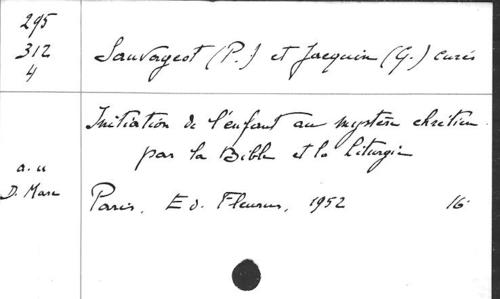 295
312
4
Sauvageot (P.) et Jacquin (G.) curés
Initiation de l'enfant au mystère chrétien
par la Bible et la Liturgie
a. u
D. Marc
Paris, Ed. Fleurus, 1952 16